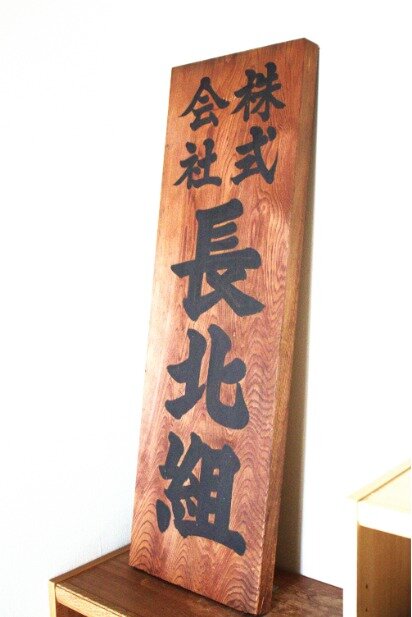 株式
会社
長北組